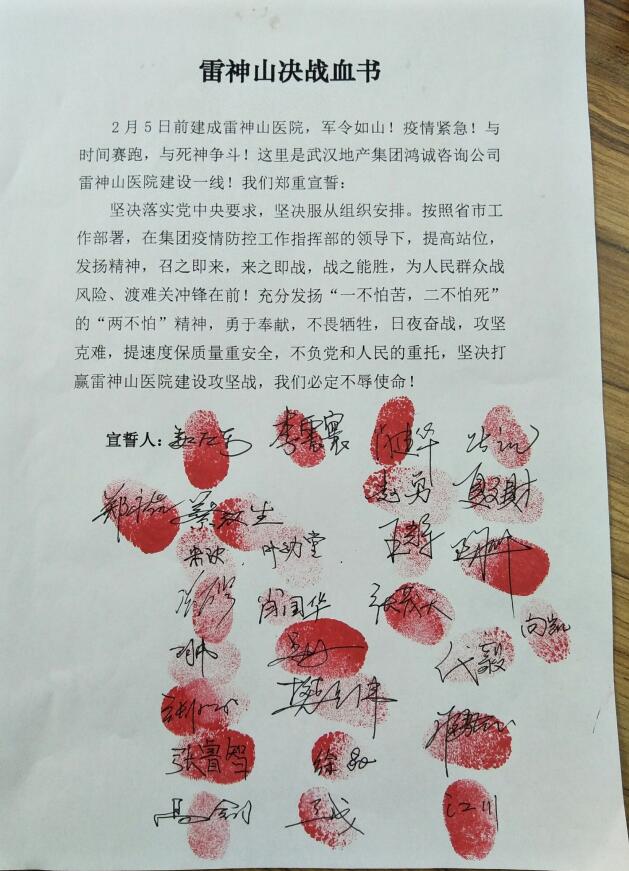 雷神山决战血书
2月5日前建成雷神山医院，军令如山！疫情紧急！与
时间赛跑，与死神争斗！这里是武汉地产集团鸿诚咨询公司
雷神山医院建设一线！我们郑重宣誓：
坚决落实党中央要求，坚决服从组织安排。按照省市工
作部署，在集团疫情防控工作指挥部的领导下，提高站位，
发扬精神，召之即来，来之即战，战之能胜，为人民群众战
风险、渡难关冲锋在前！充分发扬“一不怕苦，二不怕死”
的“两不怕”精神，勇于奉献，不畏牺牲，日夜奋战，攻坚
克难，提速度保质量重安全，不负党和人民的重托，坚决打
赢雷神山医院建设攻坚战，我们必定不辱使命！
宣誓人：
赵勇
肖国华
向凯
代毅
江川